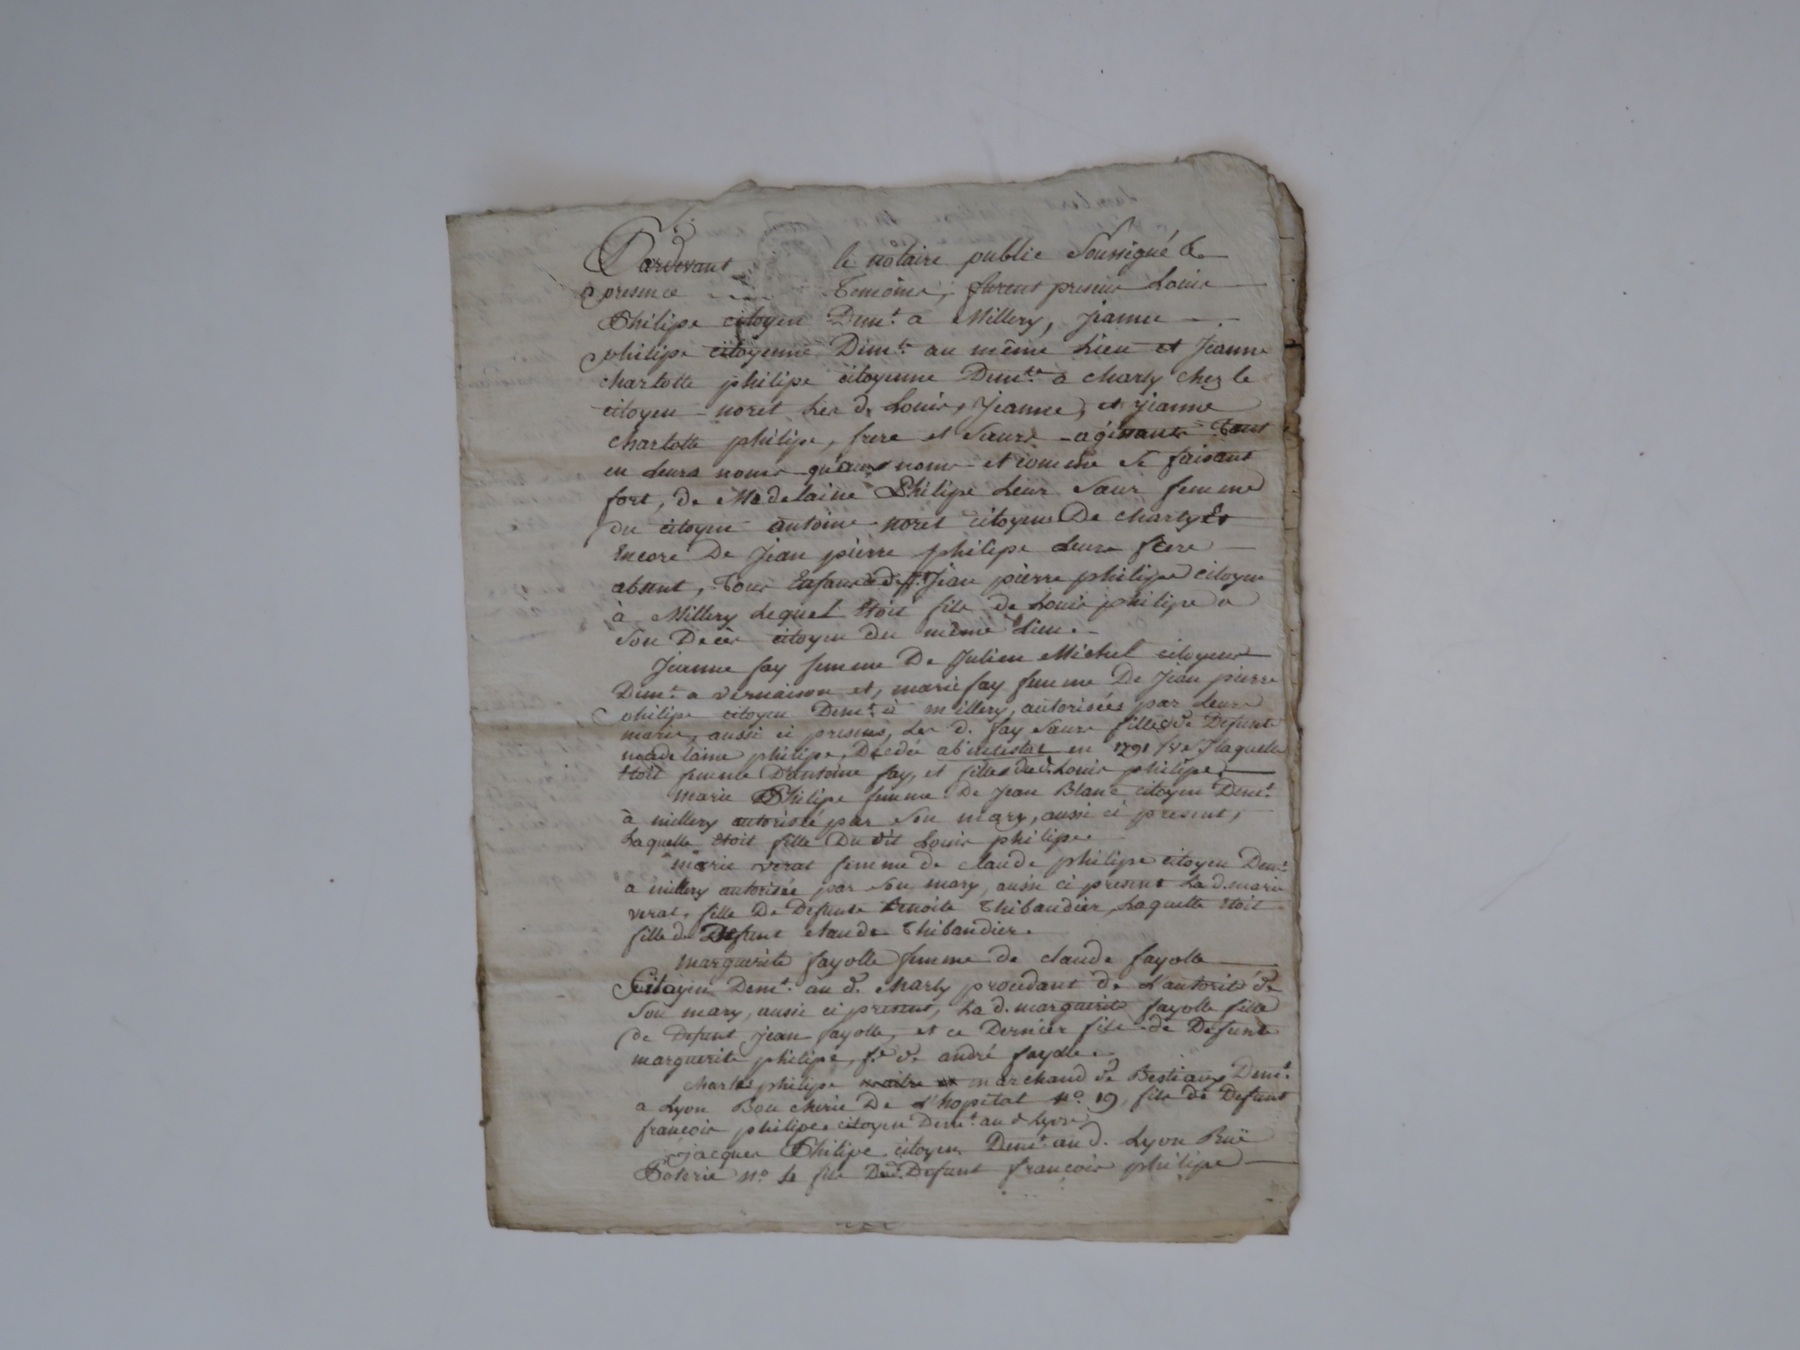 Pardevant le notaire public Soussigné &
presence Temoins, furent presens Louis
Philipe citoyen Demt. a Millery, jeanne
philipe citoyenne Demte. au même Lieu et Jeanne
charlotte philipe citoyenne Demte. a charly chez le
citoyen noret Les d. Louis, Jeanne, et jeanne
charlotte philipe, frere et Sœurs agissants Tant
en Leurs noms qu'aux noms et comme Se faisant
fort, de Madelaine Philipe Leur Sœur femme
du citoyen antoine noret citoyen De charly Et
Encore De Jean pierre philipe Leur frere
absent, Tous Enfans de deff. Jean pierre philipe citoyen
à Millery Lequel Etoit fils de Louis philipe a
Son Decès citoyen du même Lieu.
Jeanne fay femme De Julien Michel citoyen
Demt. a vernaison et, marie fay femme De Jean pierre
philipe citoyen Demt. à millery, autorisées par Leurs
maris, aussi ci presens, Les d. fay Sœurs filles de Defunte
madelaine philipe, Decedée ab intestat en 1791 laquelle
Etoit femme D'antoine fay, et fille dud. Louis philipe.
Marie Philipe femme De Jean Blanc citoyen Demt.
à millery autorisée par Son mary, aussi ci present,
Laquelle Etoit fille Du dit Louis philipe.
Marie verat femme de claude philipe citoyen Demt.
a millery autorisée par Son mary, aussi ci present La d. marie
verat, fille De Defunte Benoite Thibaudier, Laquelle Etoit
fille de Defunt claude Thibaudier.
Marguerite fayolle femme de claude fayolle
Citoyen Demt. au d. charly procedant de L'autorité de
Son mary, aussi ci present, La d. marguerite fayolle fille
de Defunt jean fayolle, et ce Dernier fils de Defunte
marguerite philipe, fe. de andré fayolle.
Charles philipe marchand de Bestiaux Demt.
a Lyon Boucherie De L'hopital No. 19, fils de Defunt
françois philipe citoyen Demt. au d. Lyon,
jacques Philipe citoyen Demt. au d. Lyon Ruë
Poterie No. fils Dud. Defunt françois philipe